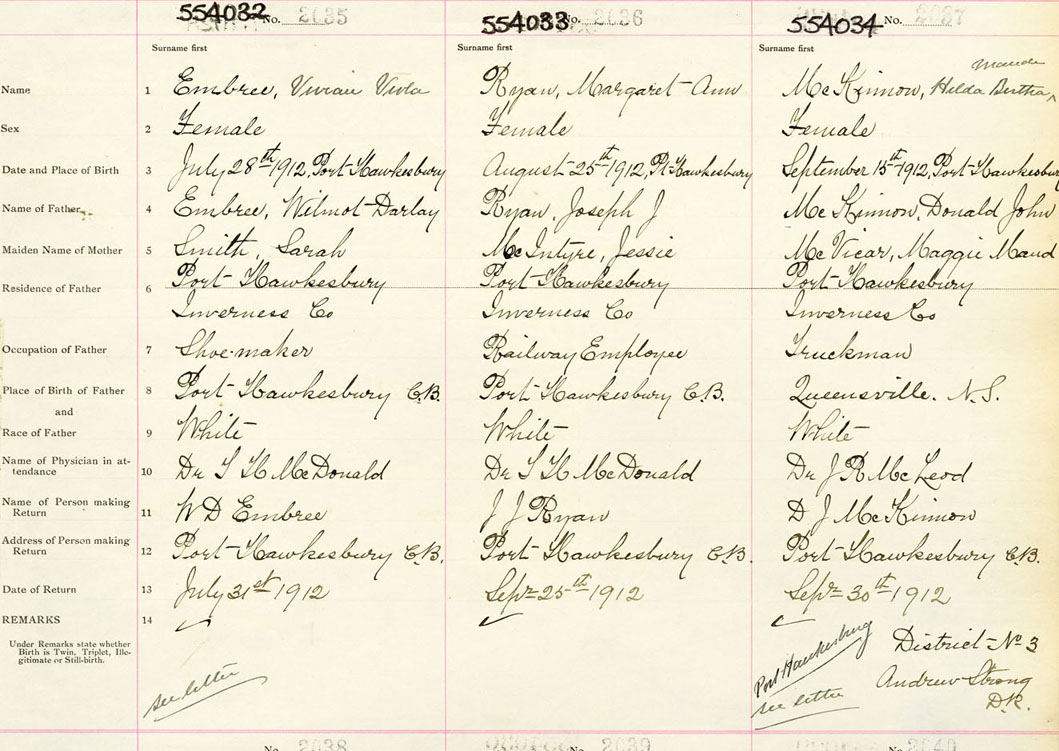 554032 No. 2035
554033 No. 2036
554034 No. 2037
Surname first
Surname first
Surname first
Maude
Name 1 Embree, Vivian Viola
Ryan, Margaret Ann
McKinnon, Hilda Bertha ^
Sex 2 Female
Female
Female
Date and Place of Birth 3 July 28th 1912, Port Hawkesbury
August 25th 1912, Pt Hawkesbury
September 15th 1912, Port Hawkesbury
Name of Father 4 Embree, Wilmot Darlay
Ryan, Joseph J
McKinnon, Donald John
Maiden Name of Mother 5 Smith, Sarah
McIntyre, Jessie
McVicar, Maggie Maud
Residence of Father 6 Port Hawkesbury
Inverness Co
Port Hawkesbury
Inverness Co
Port Hawkesbury
Inverness Co
Occupation of Father 7 Shoe-maker
Railway Employee
Truckman
Place of Birth of Father 8 Port Hawkesbury C.B.
Port Hawkesbury C.B.
Queensville. N.S.
and
Race of Father 9 White
White
White
Name of Physician in at-
tendance 10 Dr S H McDonald
Dr S H McDonald
Dr J R McLeod
Name of Person making
Return 11 W D Embree
J J Ryan
D J McKinnon
Address of Person making
Return 12 Port Hawkesbury C.B.
Port Hawkesbury C.B.
Port Hawkesbury C.B.
Date of Return 13 July 31st 1912
Sept 25th 1912
Sept 30th 1912
REMARKS 14
Under Remarks state whether
Birth is Twin, Triplet, Ille-
gitimate or Still-birth.
see letter
Port Hawkesbury
see letter
District No 3
Andrew Strong
D.R.
No. 2038
No. 2039
No. 2040